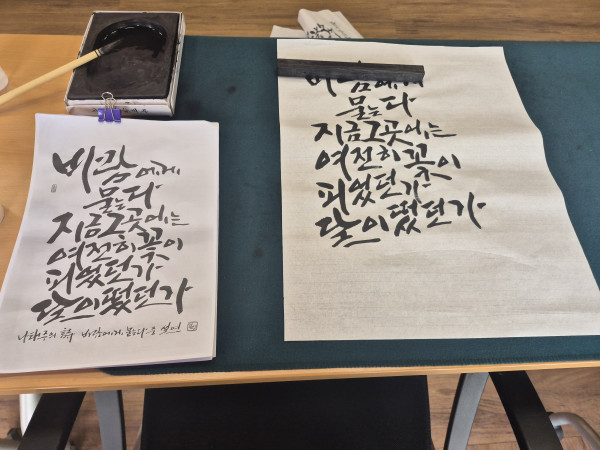 바람에게
묻는다
지금 그곳에는
여전히 꽃이
피었던가
달이 떴던가
나태주의 바람에게 묻는다
바람에게
묻는다
지금 그곳에는
여전히 꽃이
피었던가
달이 떴던가